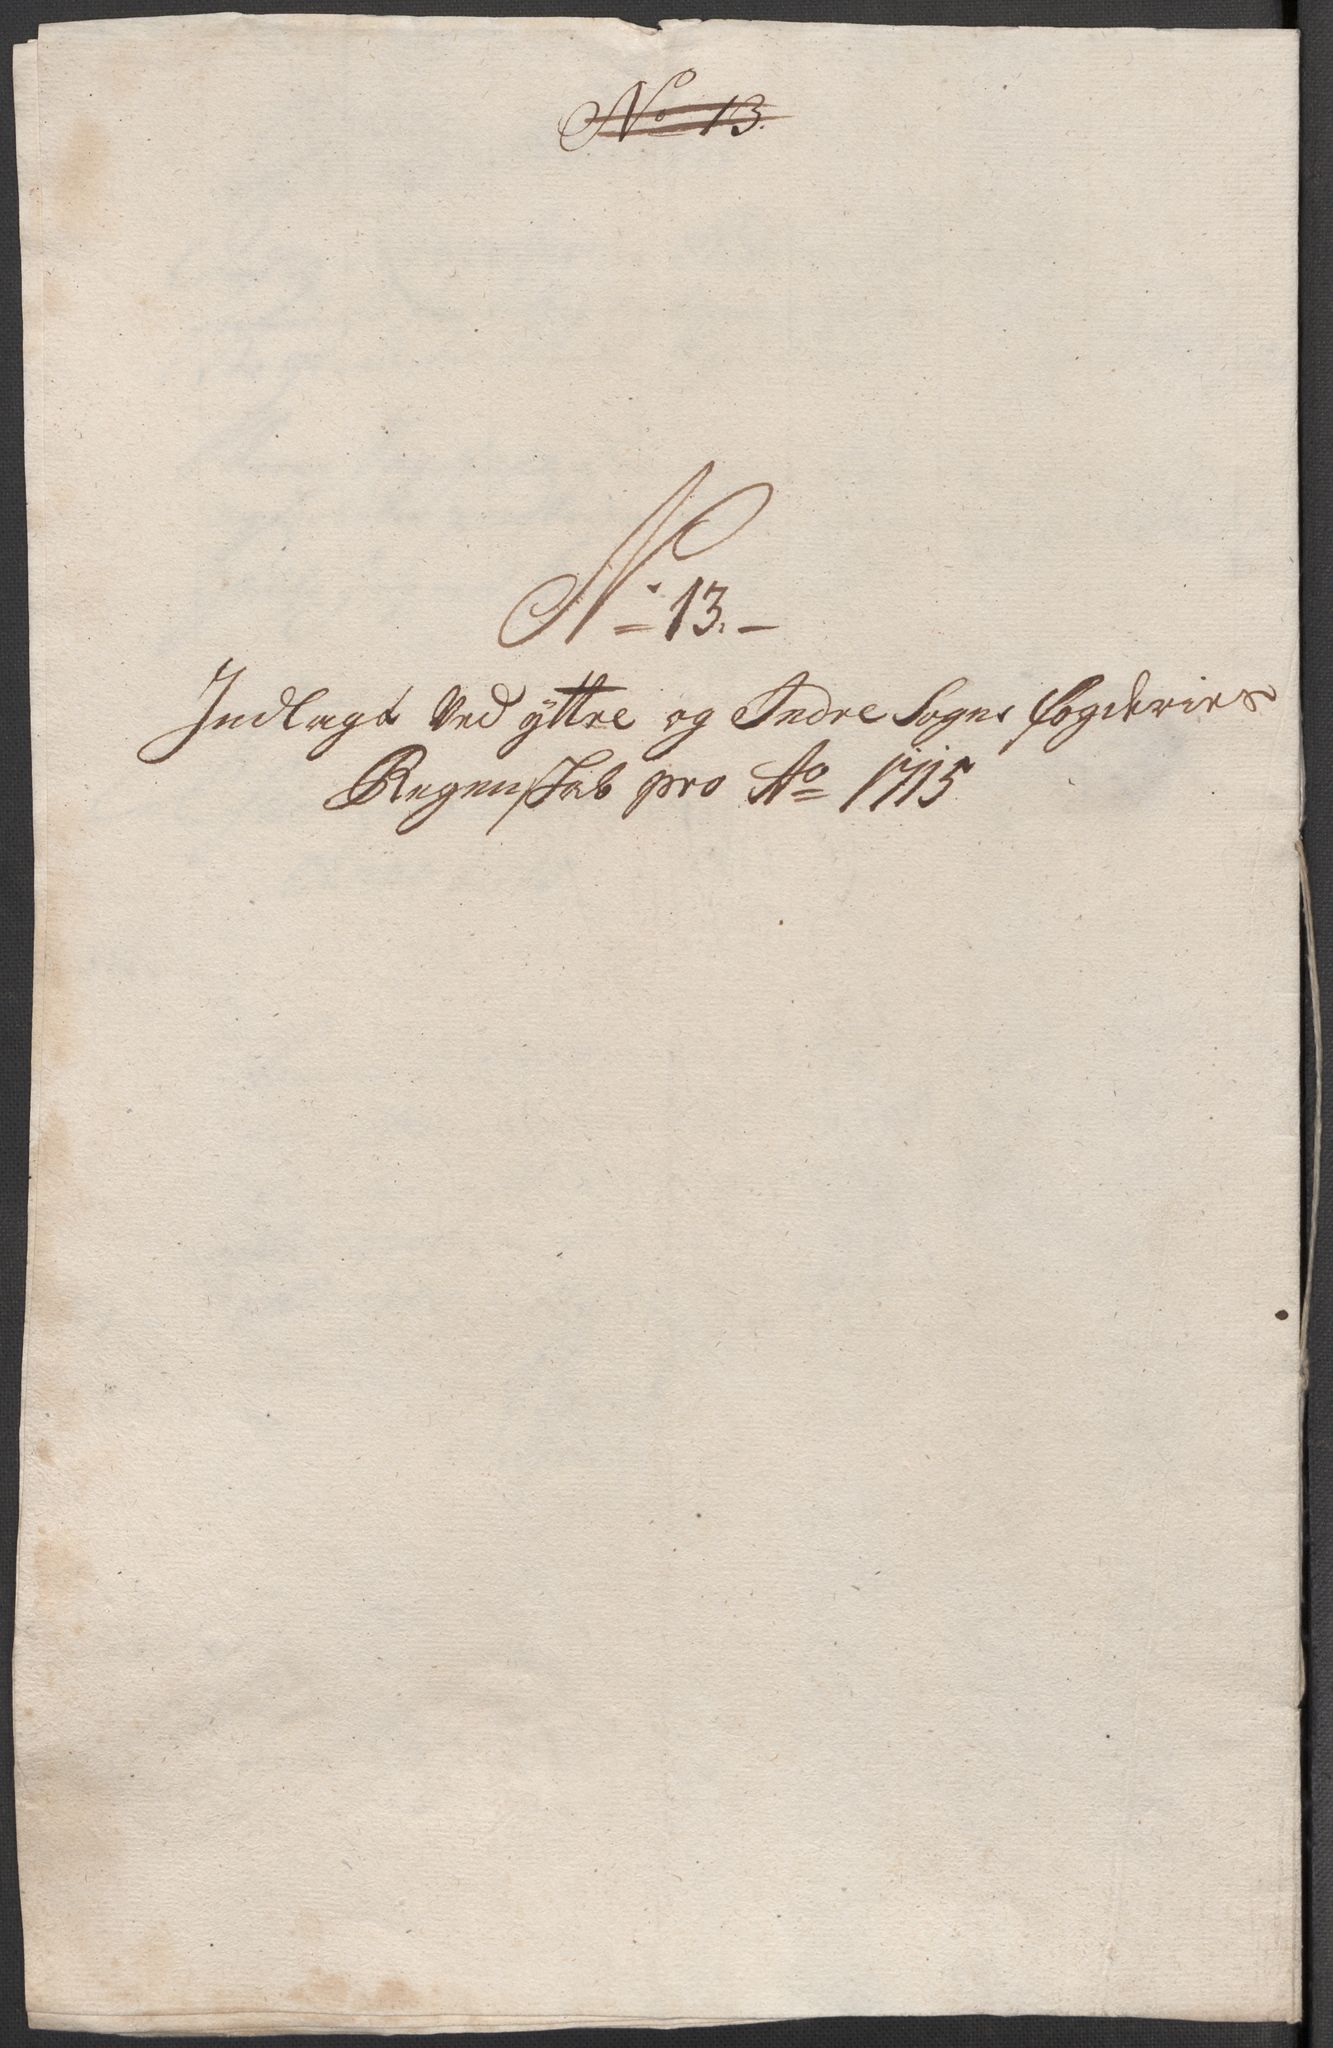 No 13.
No 13.
Indlagt Ved yttre og Indre Sogns fogderies
Regenskab pro Ao 1715